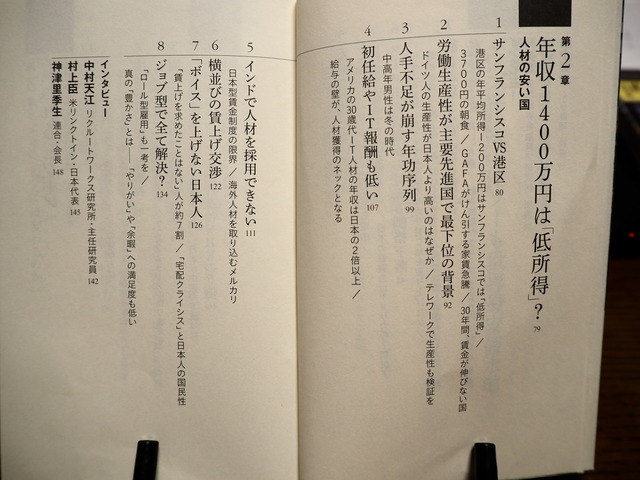 第2章
人材の安い国
年収1400万円は「低所得」? 79
1 サンフランシスコVS港区 80
港区の年平均所得1200万円はサンフランシスコでは「低所得」/
3700円の朝食/GAFAがけん引する家賃急騰/30年間、賃金が伸びない国
2 労働生産性が主要先進国で最下位の背景 92
ドイツ人の生産性が日本人より高いのはなぜか/テレワークで生産性も検証を
3 人手不足が崩す年功序列 99
中高年男性は冬の時代
4 初任給やIT報酬も低い 107
アメリカの30歳代IT人材の年収は日本の2倍以上/
給与の壁が、人材獲得のネックとなる
5 インドで人材を採用できない 111
日本型賃金制度の限界/海外人材を取り込むメルカリ
6 横並びの賃上げ交渉 122
7 「ボイス」を上げない日本人 126
「賃上げを求めたことはない」人が約7割/「宅配クライシス」と日本人の国民性
8 ジョブ型で全て解決? 134
「ロール型雇用」も一考を/
真の「豊かさ」とは――「やりがい」や「余暇」への満足度も低い
インタビュー
中村天江 リクルートワークス研究所・主任研究員 142
村上臣 米リンクトイン・日本代表 145
神津里季生 連合・会長 148